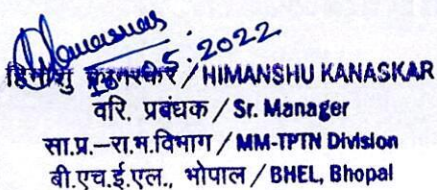 05.2022
हिमांशु कनासकर / HIMANSHU KANASKAR
वरि. प्रबंधक / Sr. Manager
सा.प्र.–रा.म.विभाग / MM-TPTN Division
बी.एच.ई.एल., भोपाल / BHEL, Bhopal